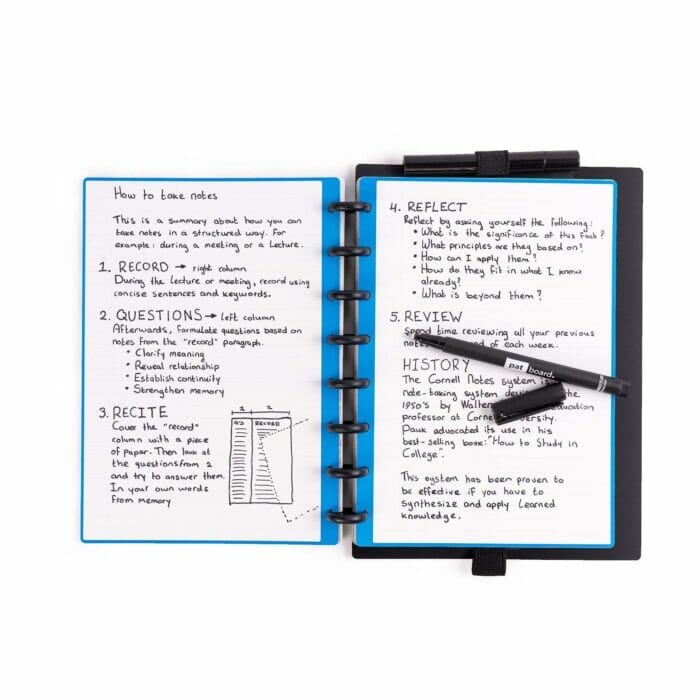 How to take notes
This is a summary about how you can
take notes in a structured way. For
example: during a meeting or a Lecture.
1. RECORD → right column
During the Lecture or meeting, record using
concise sentences and keywords.
2. QUESTIONS → left column
Afterwards, formulate questions based on
notes from the "record" paragraph.
• Clarify meaning
• Reveal relationship
• Establish continuity
• Strengthen memory
3. RECITE
Cover the "record"
column with a piece
of paper. Then look at
the questions from 2
and try to answer them.
In your own words
from memory
1 2
Q'S RECORD
4. REFLECT
Reflect by asking yourself the following:
• What is the significance of this fack?
• What principles are they based on?
• How can I apply them?
• How do they fit in what I know
already?
• What is beyond them?
5. REVIEW
Spend time reviewing all your previous
notes of each week.
HISTORY
The Cornell Notes system is
note-taking system the
1950's by Walter education
professor at Cornell
Pauk advocated its use in his
best-selling book: "How to Study in
College".
This system has been proven to
be effective if you have to
synthesize and apply Learned
knowledge.
pat board.